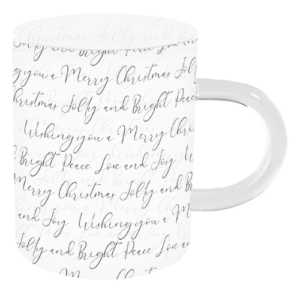 and Bright Peace Love and
ng you a Merry Christmas Jol
Christmas Jolly and Bright Peac
Wishing you a Merry
Bright Peace Love and Joy Wi
Merry Christmas Jolly and B
and Joy Wishing you a M
Jolly and Bright Peace Love an
Merry Christmas